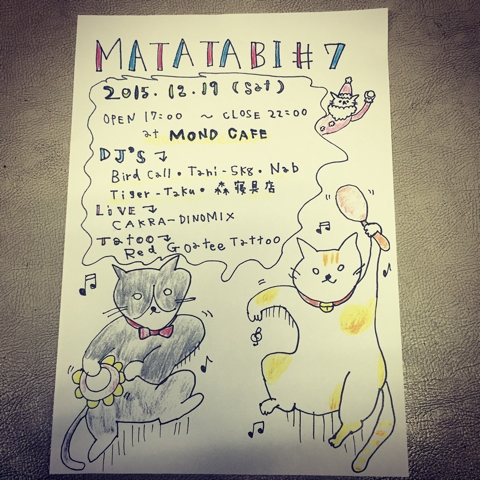 MATATABI #7
2015.12.19 (Sat)
OPEN 17:00 ~ CLOSE 22:00
at MOND CAFE
DJ'S
Bird Call・Tani-5kg・Nab
Tiger-Taku・森寝具店
LiVE
CAKRA-DINOMIX
Tatoo
Red Goatee Tattoo